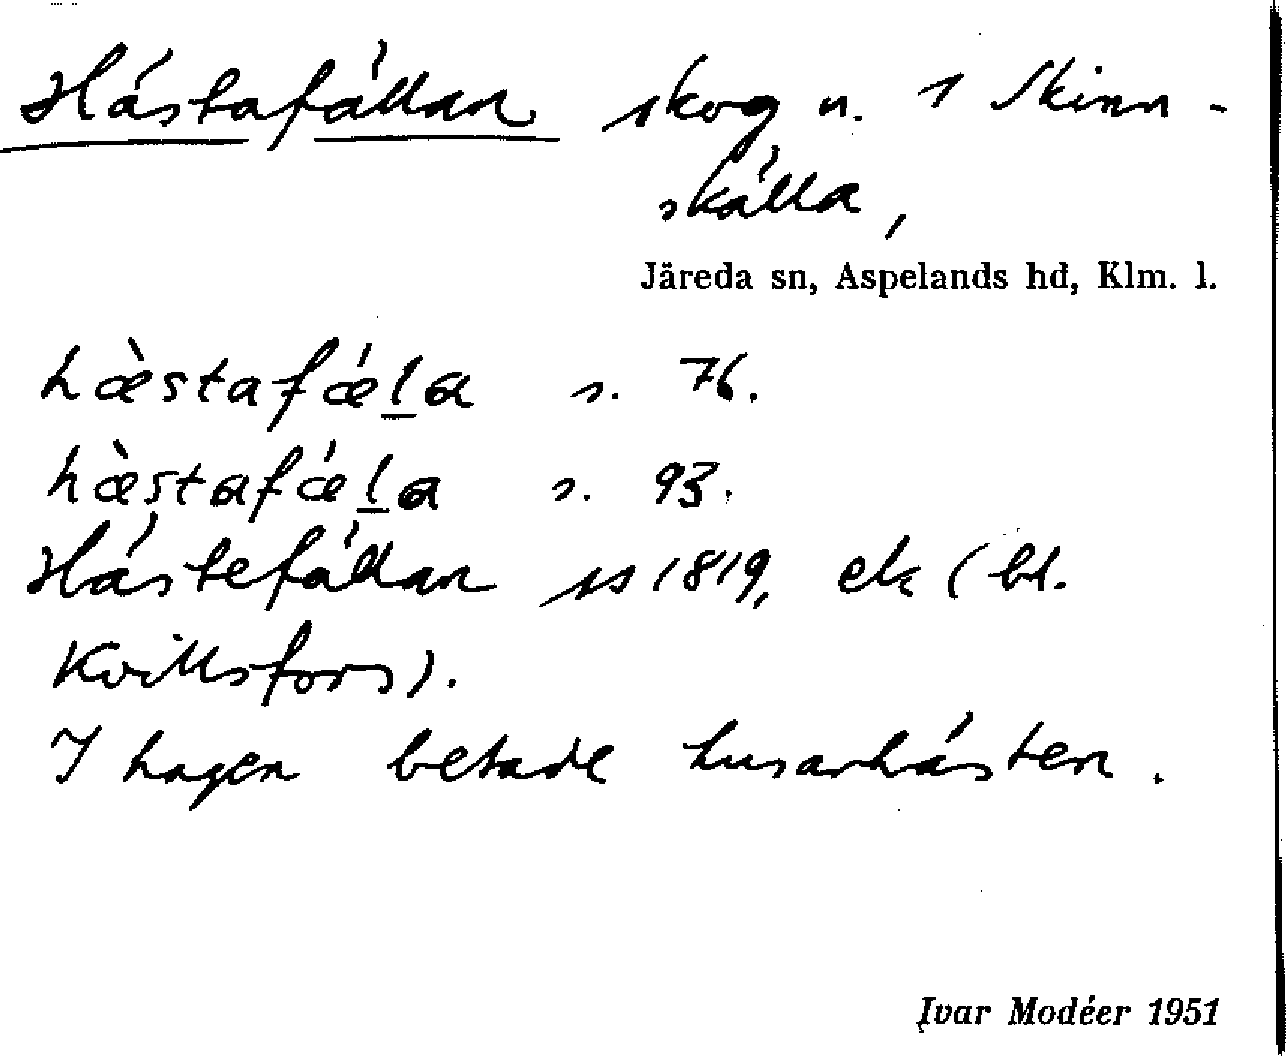 Hästafällan skog n. 1 Skinn-
skälla,
Järeda sn, Aspelands hd, Klm. l.
hæ̀stafǽḻa s. 76.
hæ̀stafǽḻa s. 93.
Hästefällan ss 1819, ek (bl.
Kvillsfors).
I hagen betade husarhästen.
Ivar Modéer 1951